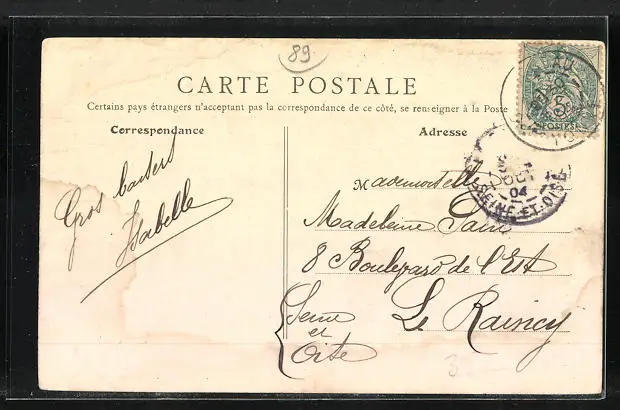 89
CARTE POSTALE
Certains pays étrangers n'acceptant pas la correspondance de ce côté, se renseigner à la Poste
Correspondance
Adresse
Gros baisers
Isabelle
Mademoiselle
Madeleine
8 Boulevard de l'Est
Le Raincy
Seine
et
Oise
POSTES
04
SEINE-ET-OISE